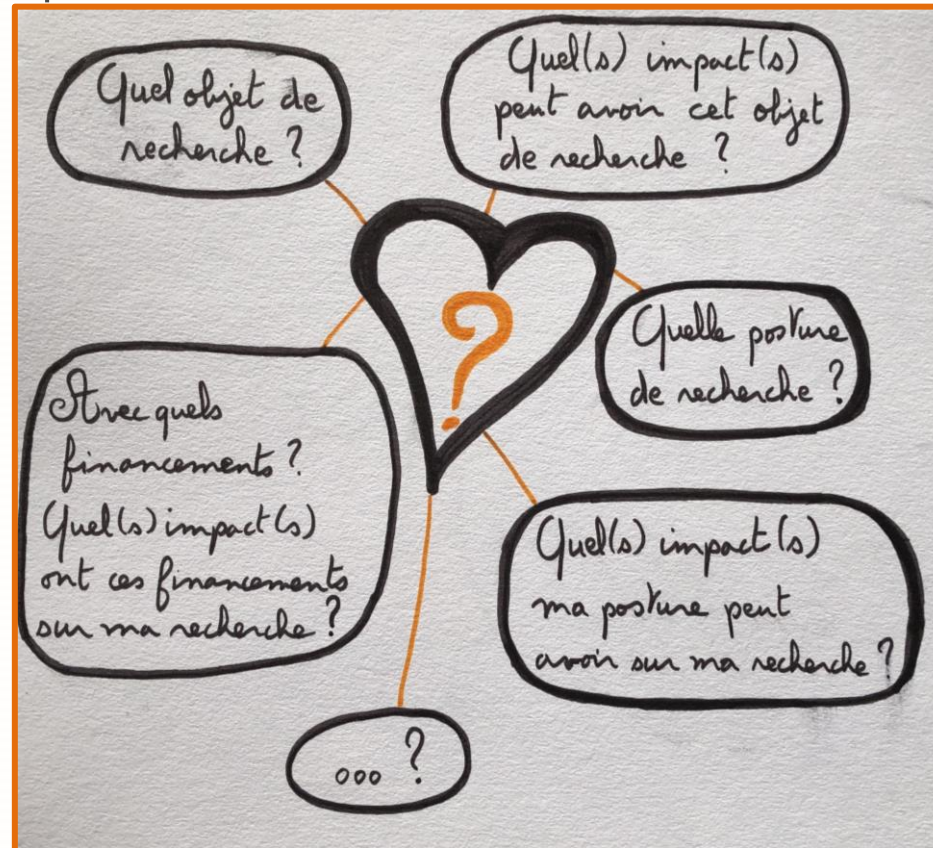 Quel objet de
recherche ?
Quel(s) impact(s)
peut avoir cet objet
de recherche ?
?
Quelle posture
de recherche ?
Avec quels
financements ?
Quel(s) impact(s)
ont ces financements
sur ma recherche ?
Quel(s) impact(s)
ma posture peut
avoir sur ma recherche ?
... ?